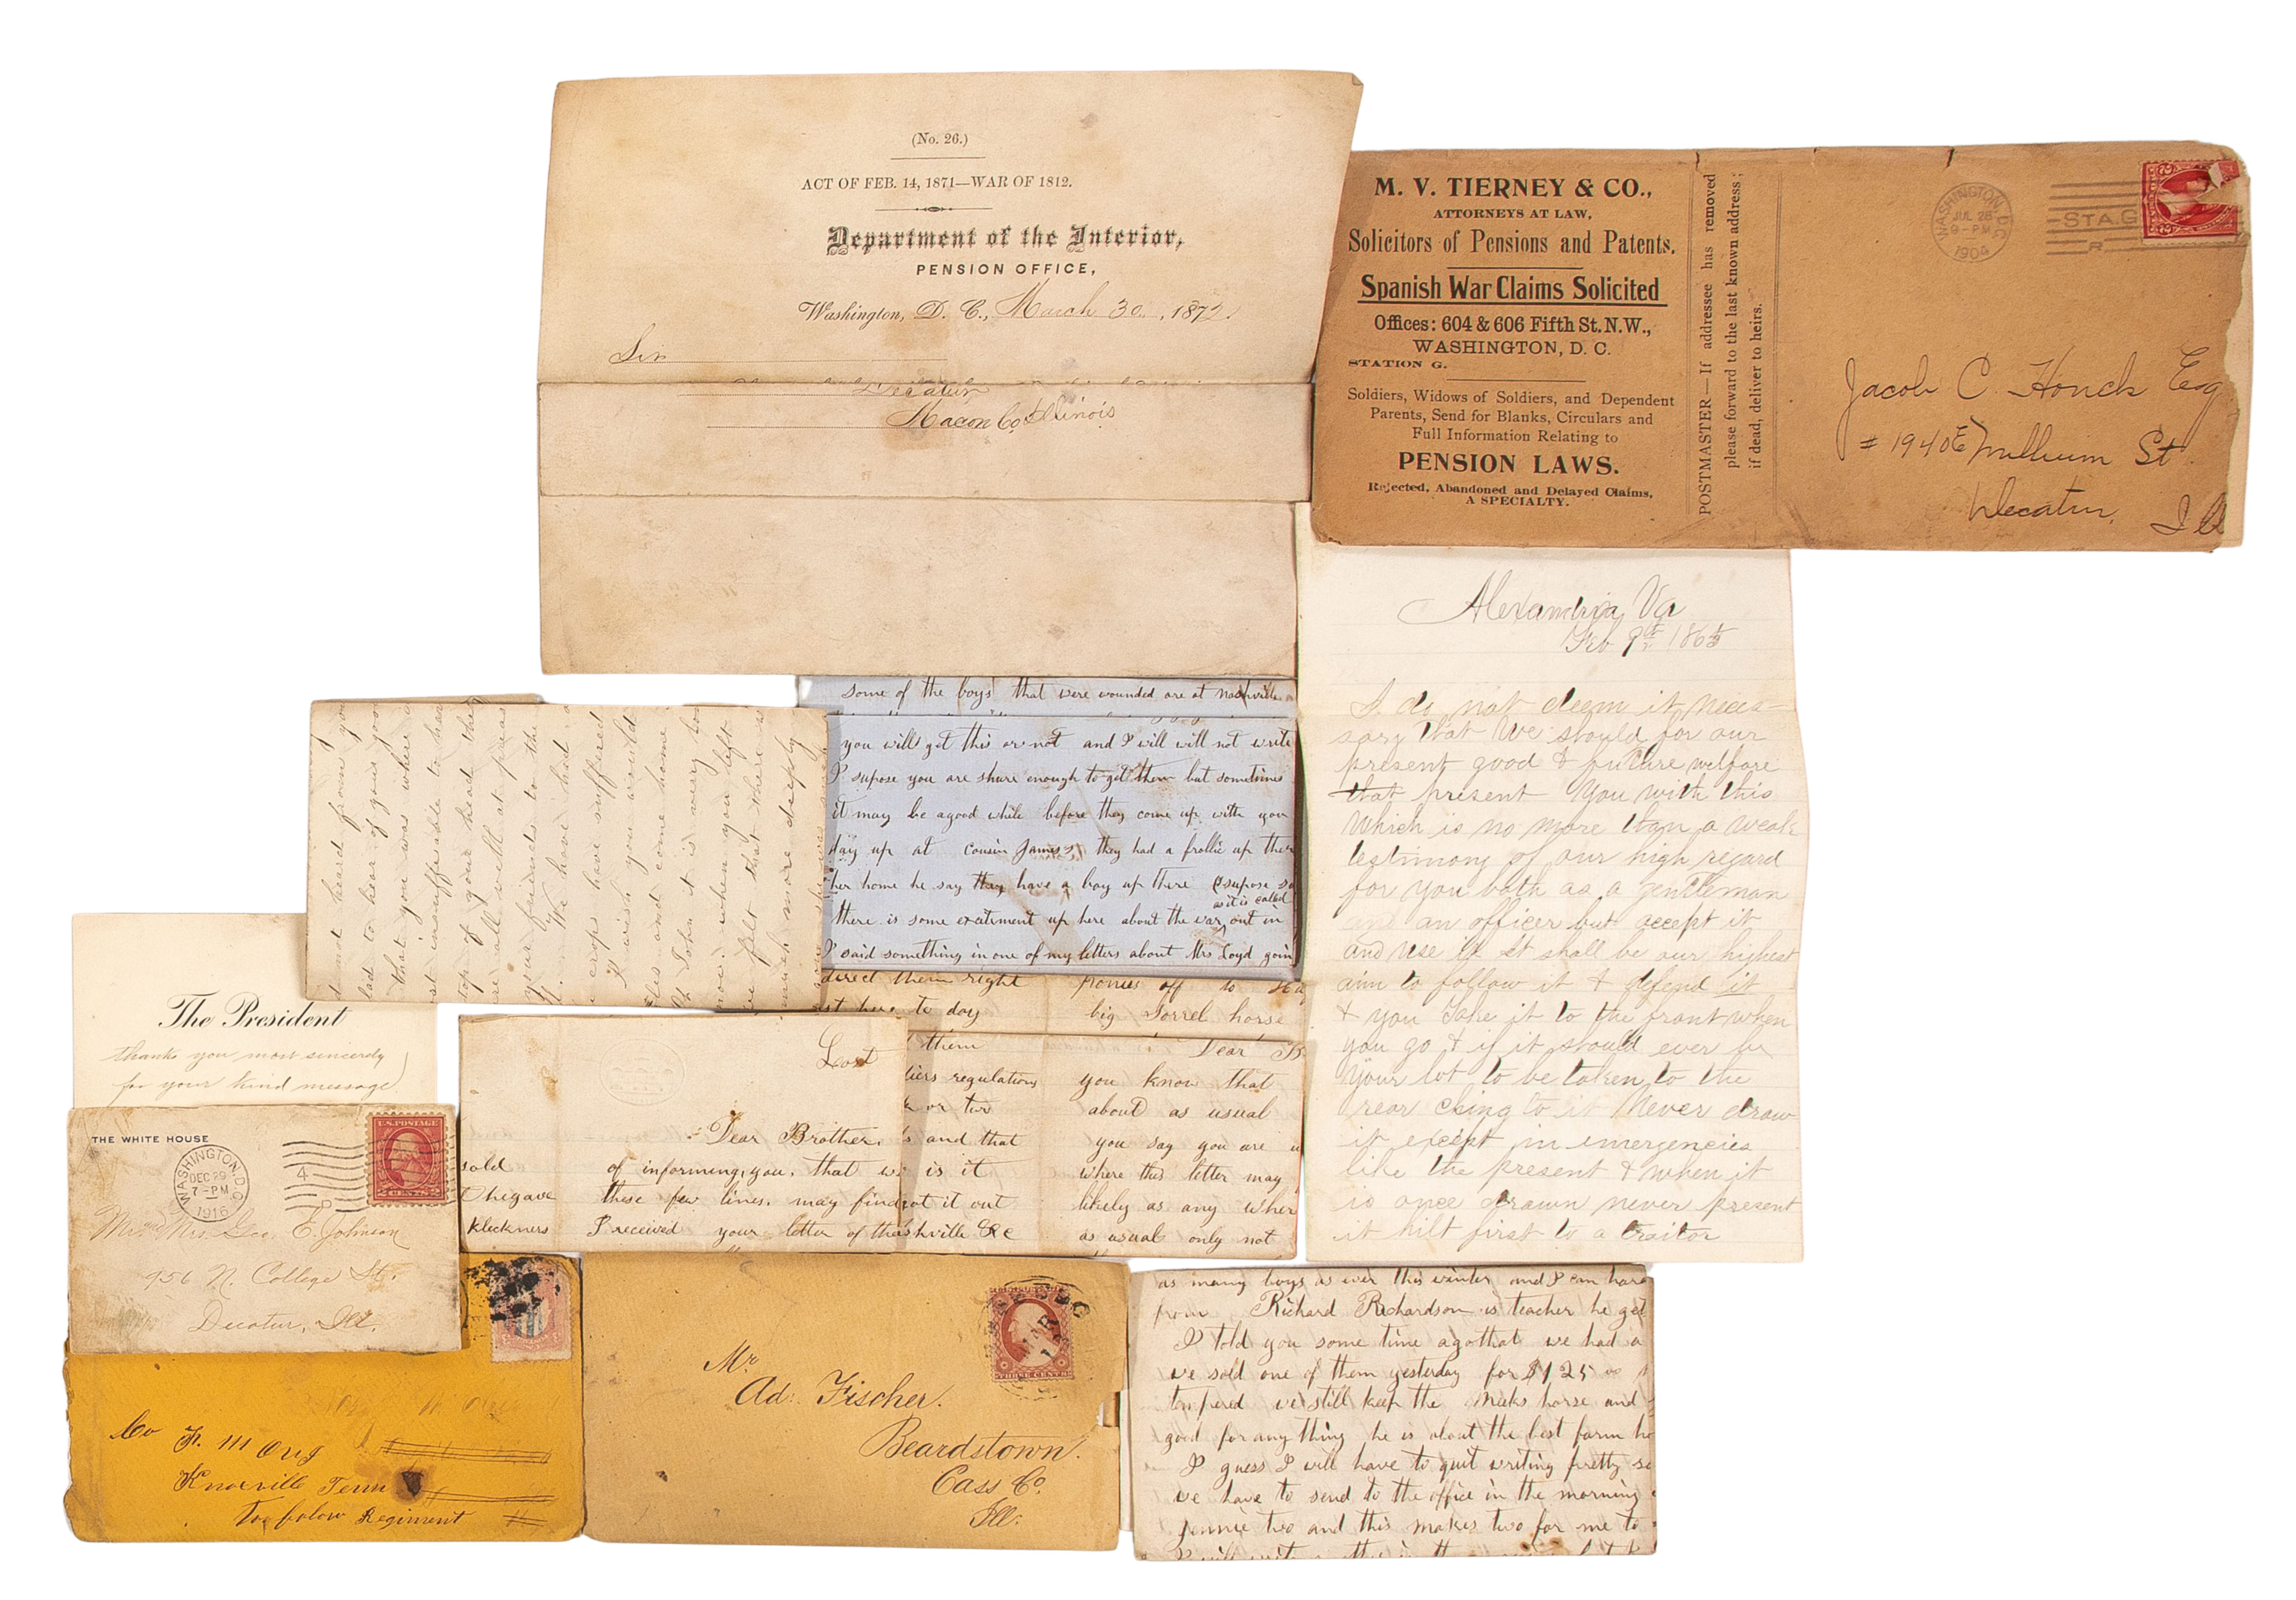 (No. 26.)
ACT OF FEB. 14, 1871—WAR OF 1812.
Department of the Interior,
PENSION OFFICE,
Washington, D. C., March 30, 1872.
Sir
Decatur
Macon Co Illinois
M. V. TIERNEY & CO.,
ATTORNEYS AT LAW,
Solicitors of Pensions and Patents.
Spanish War Claims Solicited
Offices: 604 & 606 Fifth St. N.W.,
WASHINGTON, D. C.
STATION G.
Soldiers, Widows of Soldiers, and Dependent
Parents, Send for Blanks, Circulars and
Full Information Relating to
PENSION LAWS.
Rejected, Abandoned and Delayed Claims,
A SPECIALTY.
POSTMASTER—If addressee has removed
please forward to the last known address;
if dead, deliver to heirs.
WASHINGTON, D.C.
JUL 28
9-PM
1904
STA. G
Jacob C Houck Esq
# 1940 E
St
Decatur, Ill
Alexandria, Va
Feb 9th 1865
I do not deem it neces-
sary that we should for our
present good & future welfare
that present You with this
Which is no more than a weak
testimony of our high regard
for you both as a gentleman
and an officer but accept it
and use it It shall be our highest
aim to follow it & defend it
& you Take it to the front when
you go & if it should ever be
your lot to be taken to the
rear cling to it Never draw
it except in emergencies
like the present & when it
is once drawn never present
it hilt first to a traitor
some of the boys that were wounded are at nashville
you will get this or not and I will will not write
I supose you are shure enough to get them but sometimes
it may be a good while before they come up with you
day up at cousin James's they had a frollic up ther
her home he say they have a boy up there (supose so
as it is called
there is some exitiment up here about the war, out in
I said something in one of my letters about Mrs Loyd goin
heard from you
lad to hear of your goo
that you was where
st insufferable to hea
top of your head the
re all well at pres
your friends to the
We have had a
crops have suffered
I wish you would
les and come home
John it is very lo
now. when you left
we felt that there
much more deeply
direct them right
ponies off to
st here to day
big Sorrel horse
them
Dear B
liers regulations
you know that
or two
about as usual
and that
you say you are
is it
where this letter may
not it out
likely as any wher
shville &c
as usual only not
Lost
Dear Brother.
sold
of informing, you, that we
these few lines. may find
kleckners
I received your letter of the
The President
thanks you most sincerely
for your kind message
THE WHITE HOUSE
WASHINGTON, D.C.
DEC 29
7-PM
1916
4
U.S. POSTAGE
Mr and Mrs. Geo. E. Johnson
956 N. College St.
Decatur, Ill.
Co F. 111
Knoxville Tenn
To folow Regiment
MAR
THREE CENTS
Mr
Ad: Fischer.
Beardstown.
Cass Co.
Ill.
as many boys as ever this winter and I can hard
from Richard Richardson is teacher he get
I told you some time ago that we had a
we sold one of them yesterday for $125
tempered we still keep the Meeks horse and
good for any thing he is about the best farm ho
I guess I will have to quit writing pretty so
we have to send to the office in the morning
Jennie two and this makes two for me to